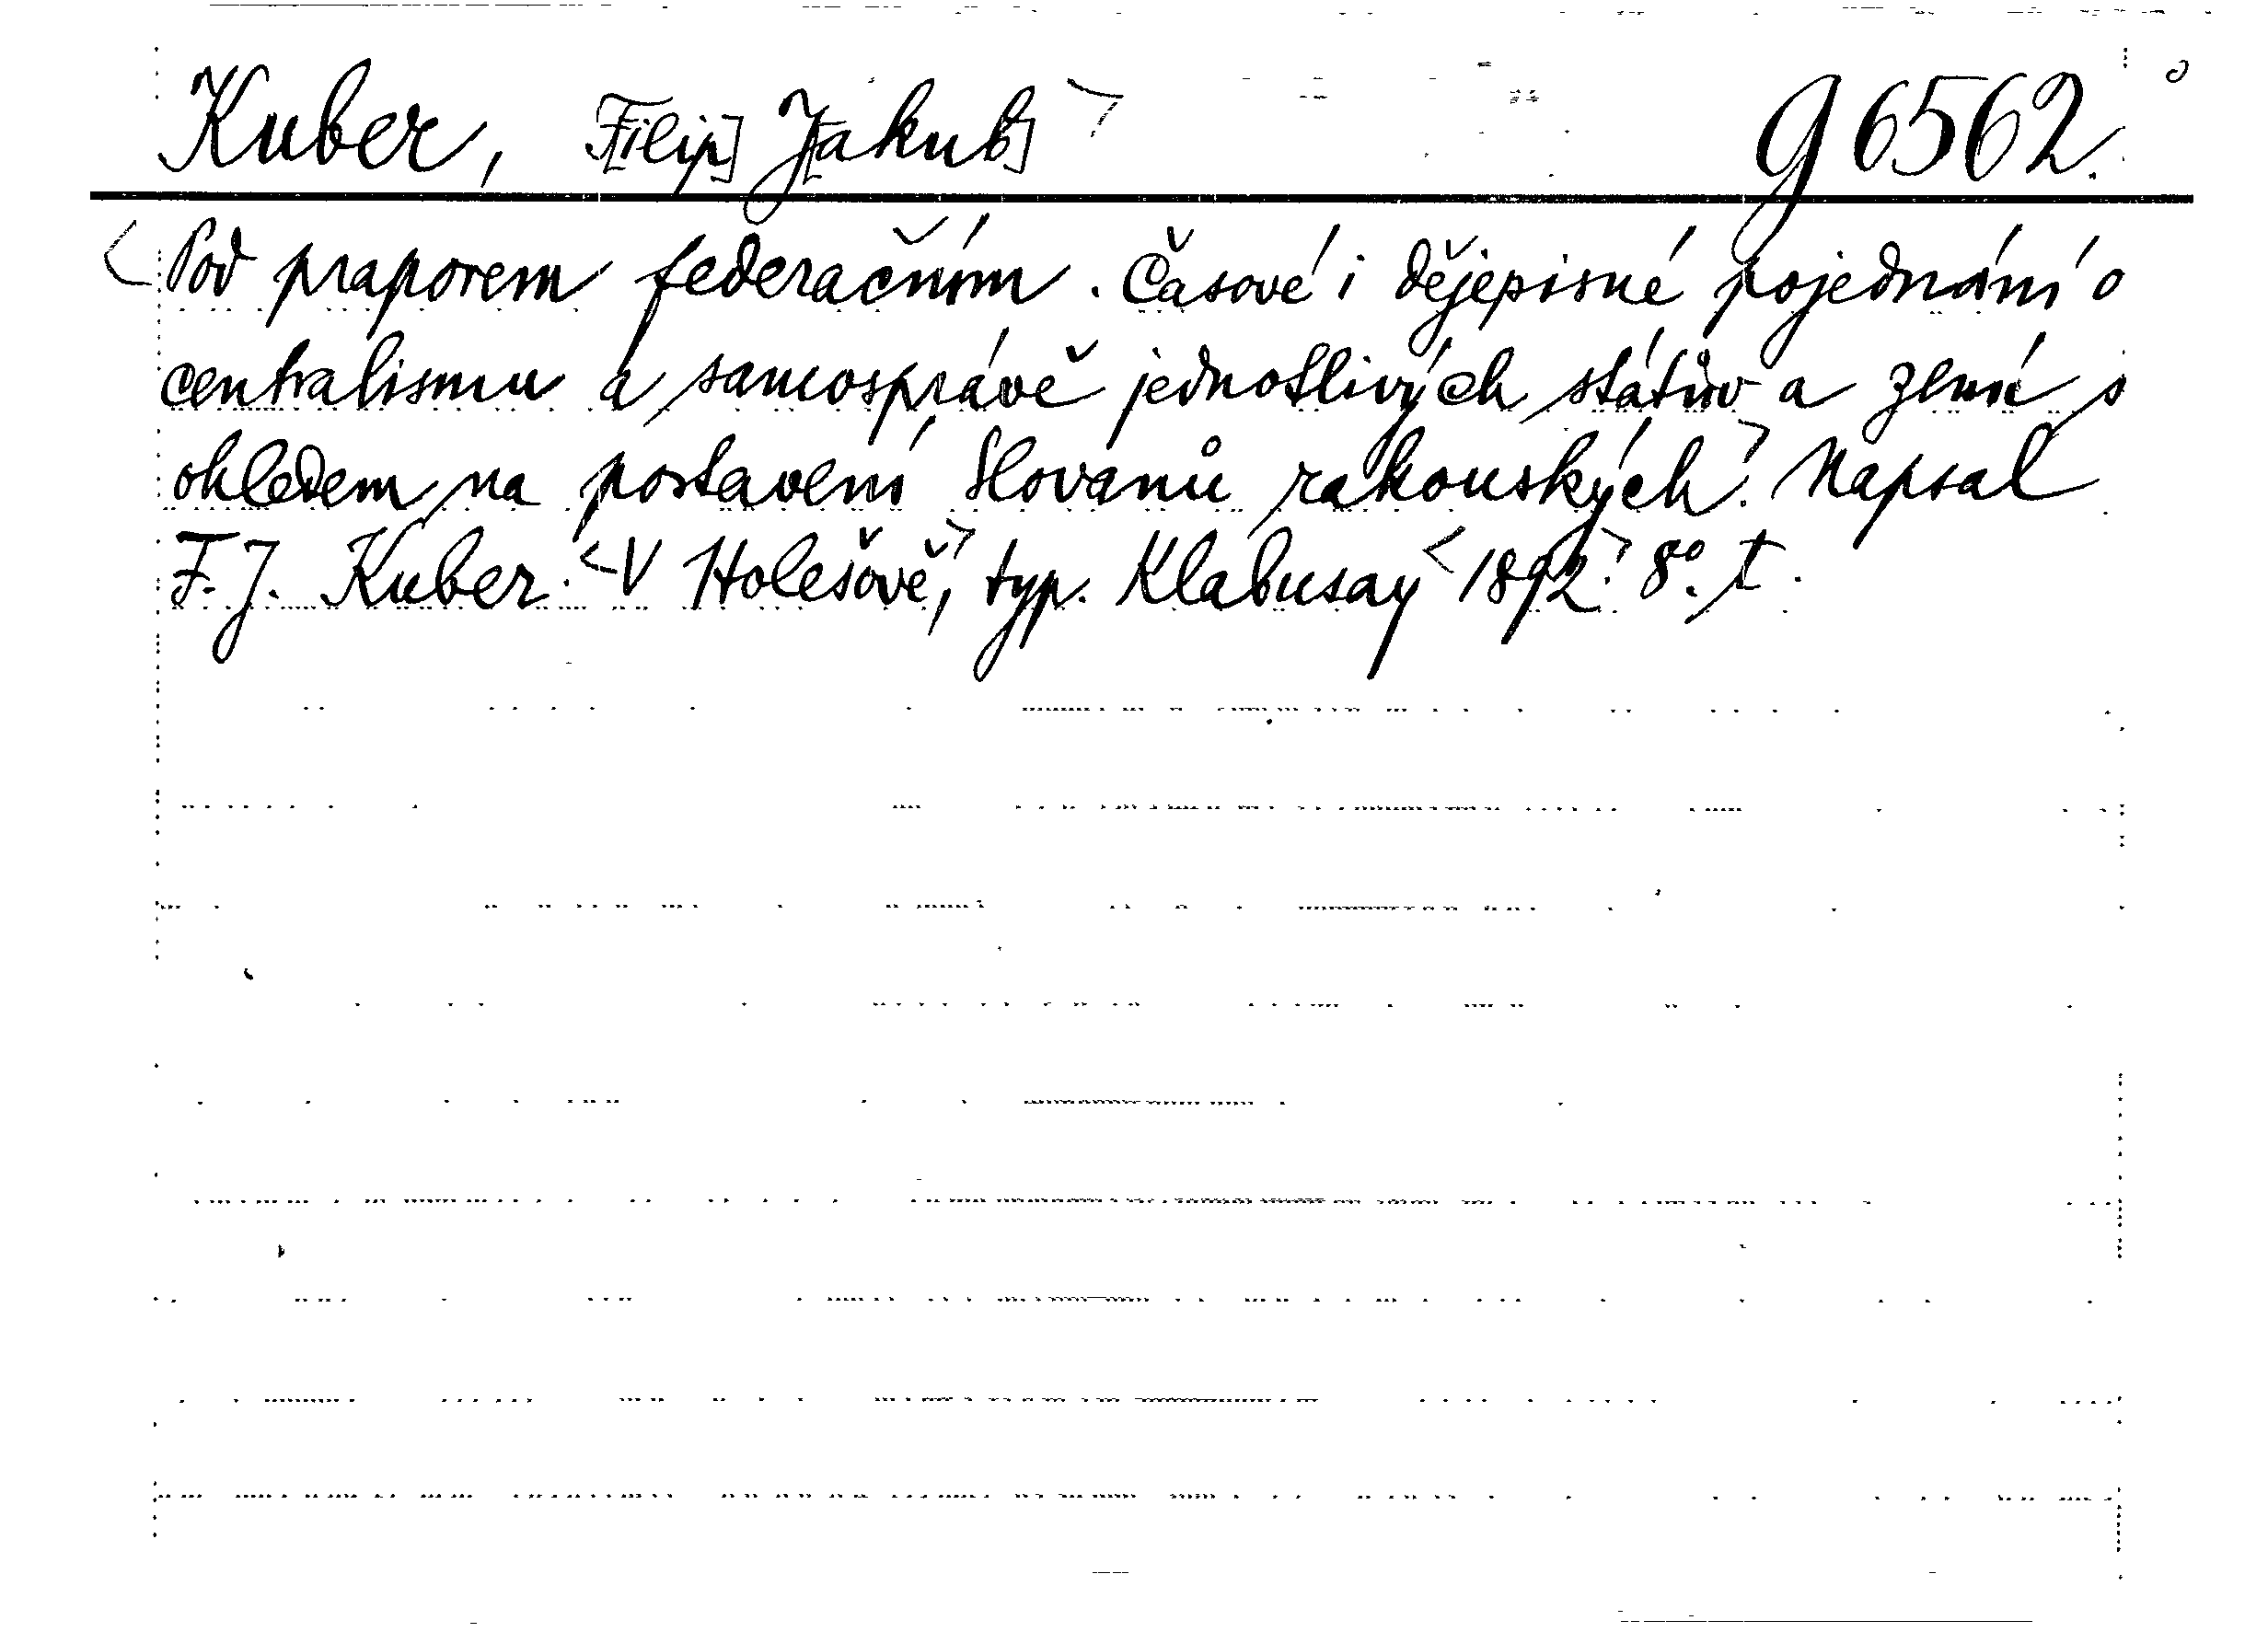 Kuber, F[ilip] J[akub] g 6562.
Pod praporem federačním. Časové i dějepisné pojednání o
centralismu a samosprávě jednotlivých státův a zemí s
ohledem na postavení Slovanů rakouských. Napsal
F. J. Kuber. V Holešově, typ. Klabusay 1892. 8°. t.